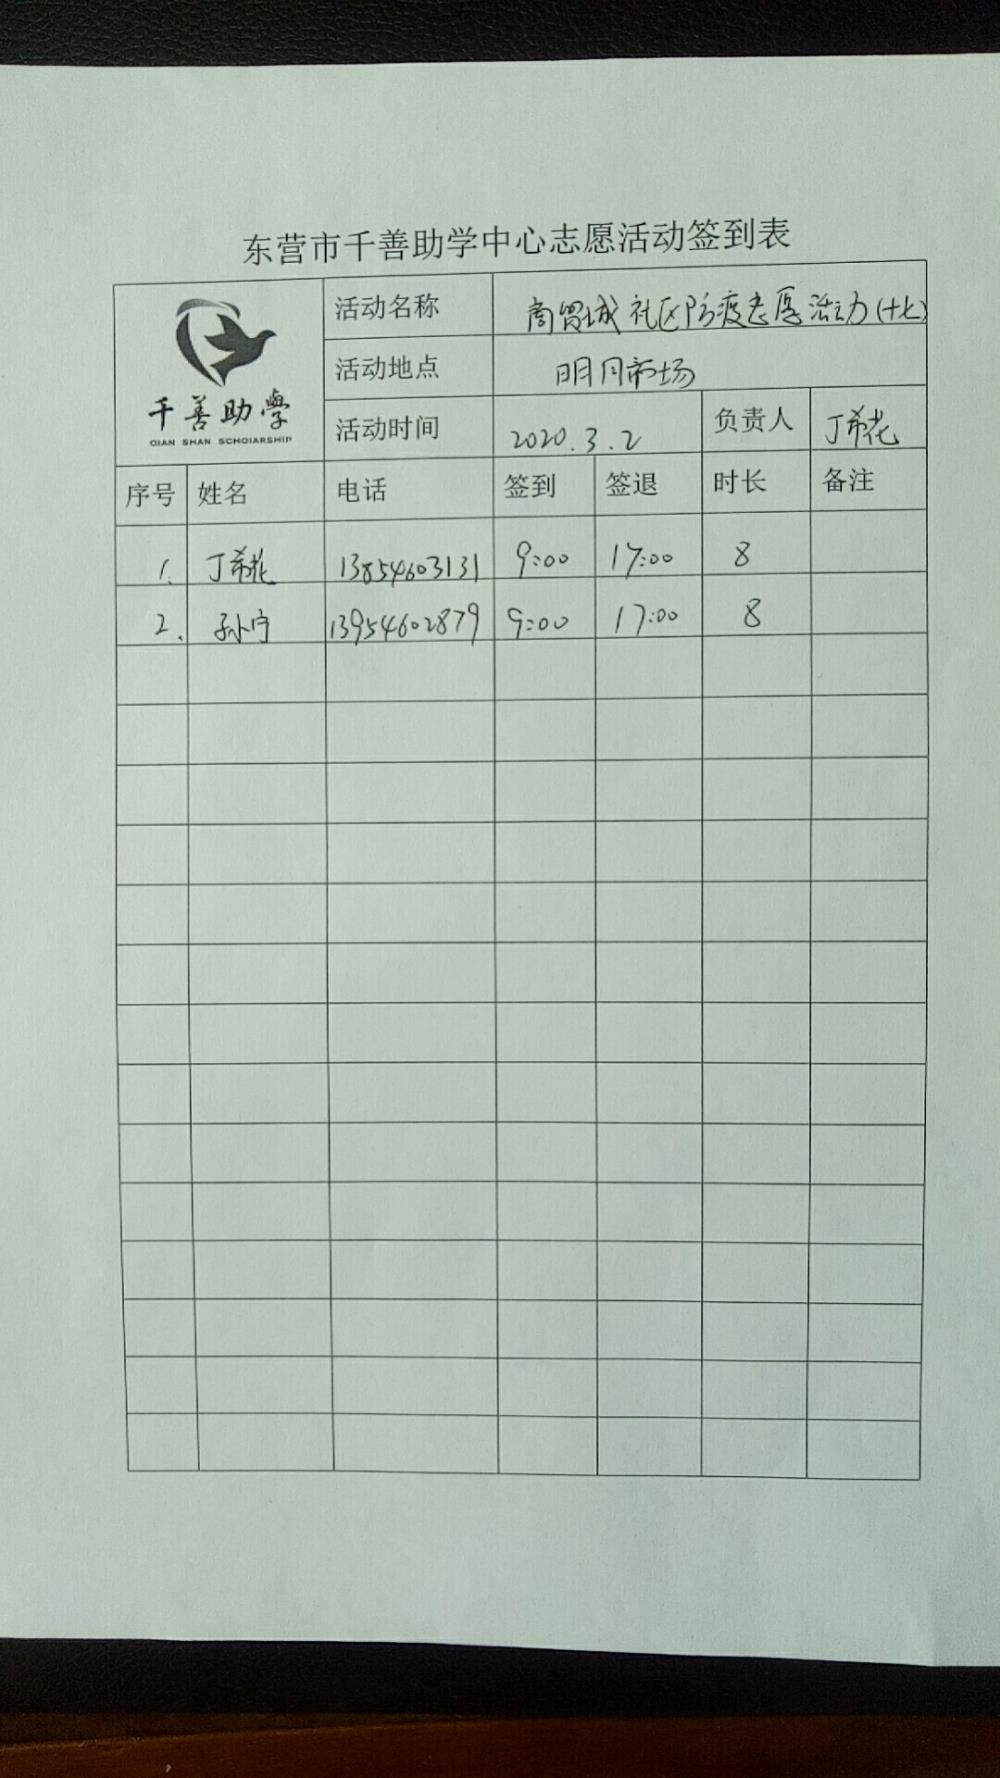 东营市千善助学中心志愿活动签到表
千善助學
QIAN SHAN SCHOIARSHIP
活动名称 商贸城社区防疫志愿活动(十七)
活动地点 明月市场
活动时间 2020.3.2 负责人 丁希花
序号 姓名 电话 签到 签退 时长 备注
1. 丁希花 13854603131 9:00 17:00 8
2. 孙宁 13954602879 9:00 17:00 8